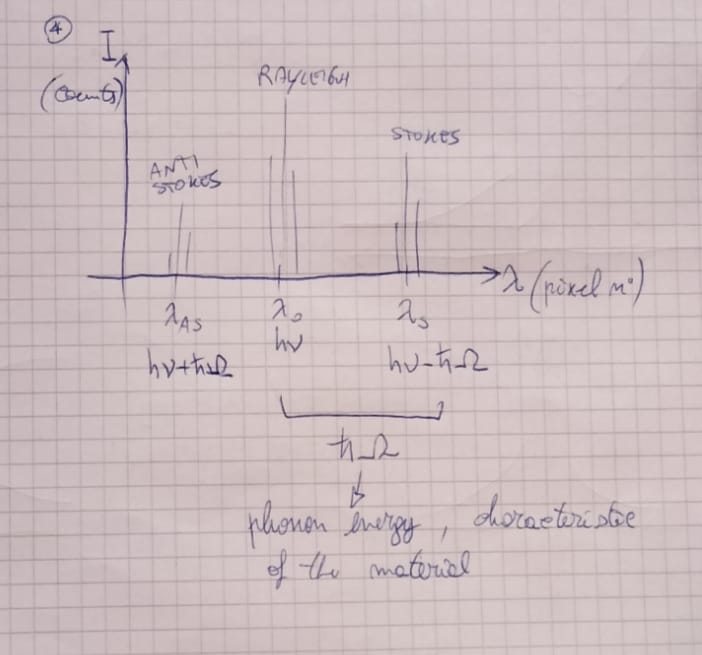 ④
I
(counts)
RAYLEIGH
ANTI
STOKES
STOKES
λ (pixel n°)
λAS
λo
λs
hν+ħΩ
hν
hν-ħΩ
ħΩ
phonon energy, characteristic
of the material